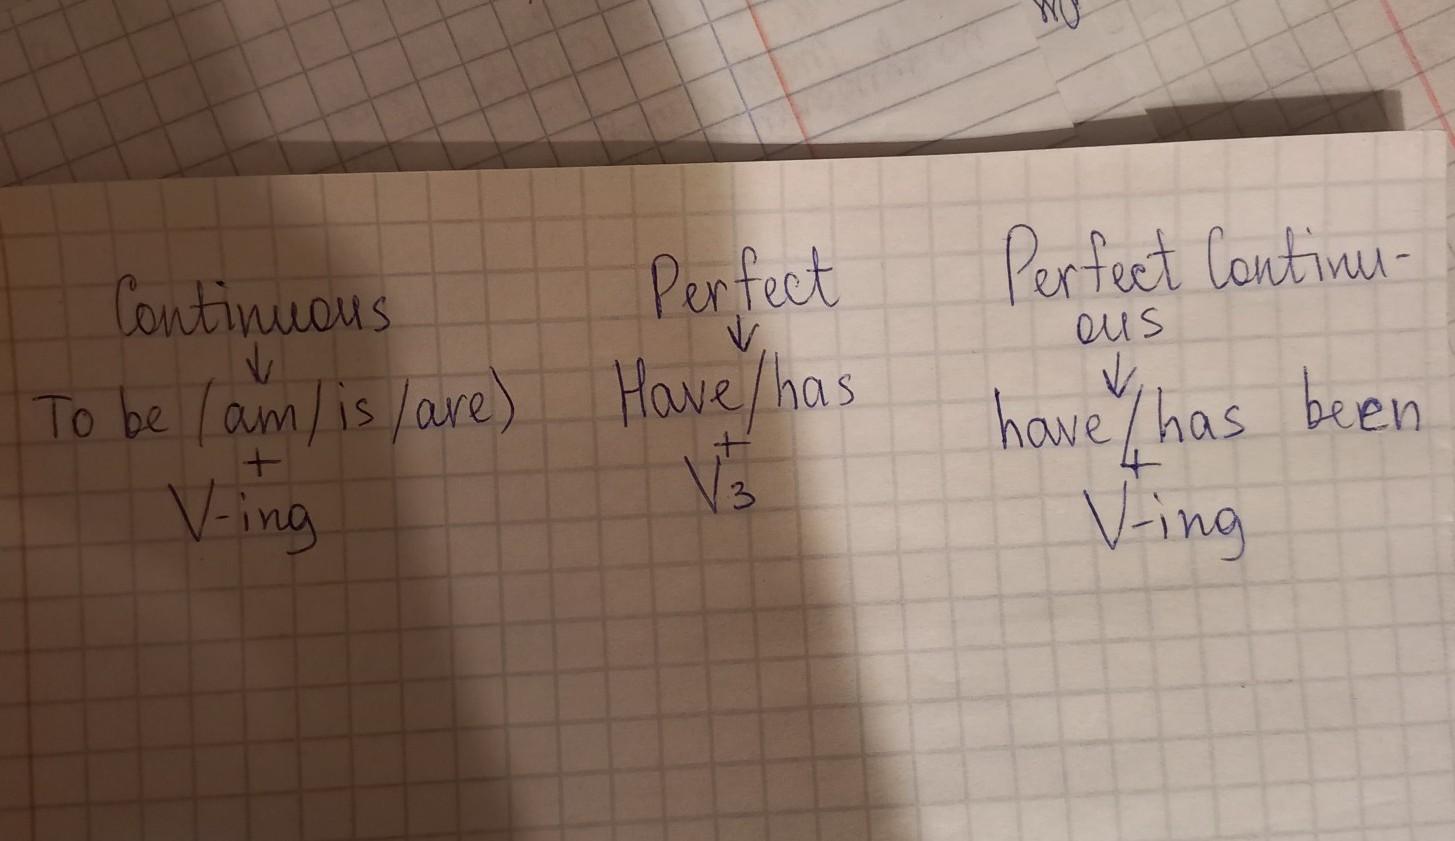 Continuous
↓
To be (am/is/are)
+
V-ing
Perfect
↓
Have/has
+
V3
Perfect Continu-
ous
↓
have/has been
+
V-ing